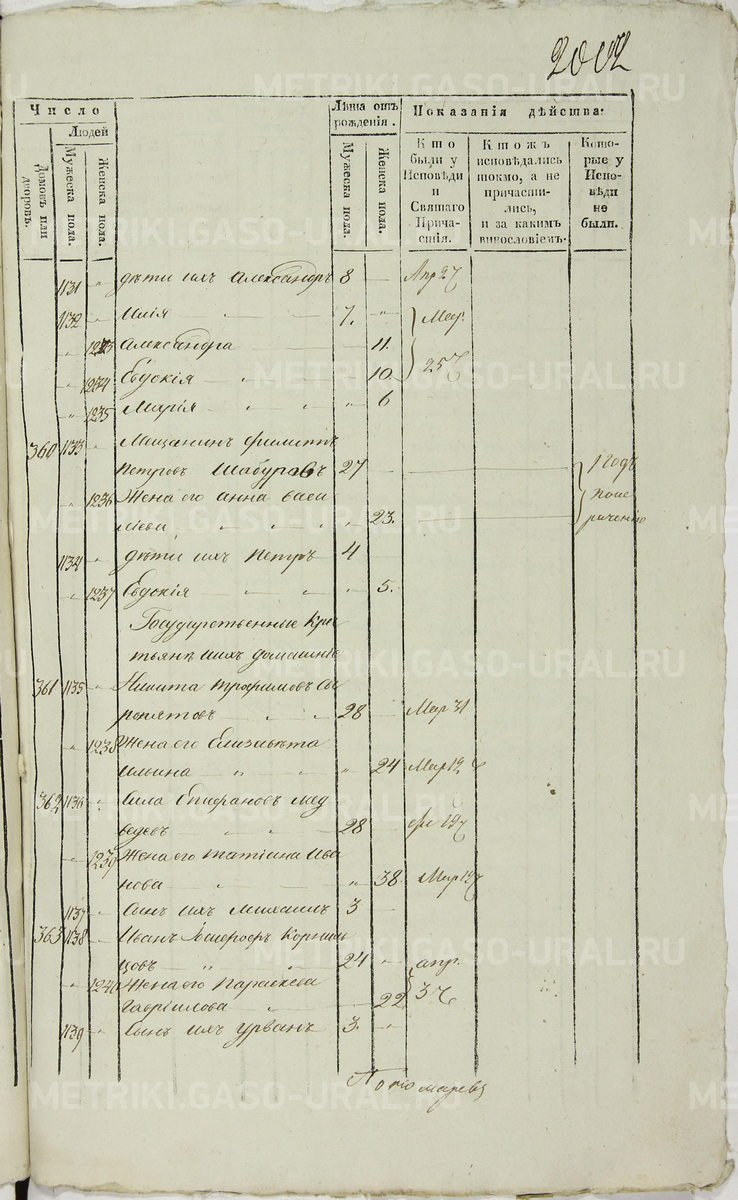 2002
Число
Людей
Домовъ или дворовъ.
Мужеска пола.
Женска пола.
Лѣта отъ рожденія.
Мужеска пола.
Женска пола.
Показанія дѣйства:
Кто были у Исповѣди и Святаго Причастія.
Ктожъ исповѣдались токмо, а не причастились, и за какимъ винословіемъ.
Которые у Исповѣди не были.
1131 " дѣти ихъ Александръ 8 — Апр 27
1132 " Илія 7. " Мар.
" 1233 Александра 11. 25
" 1234 Евдокія 10.
" 1235 Марія " 6
360 1133 " Мещанинъ Филиппъ
Петровъ Шабуровъ 27 — 1 годъ
" 1236 Жена его Анна Васи
ліева " 23. по не
рачению
1134 " дѣти ихъ Петръ 4
" 1237 Евдокія " 5.
Государственные Кре
стьяне и ихъ домашніе
361 1135 " Никита Трофимовъ
28 — Мар 31
" 1238 Жена его Елизавета
Ильина " 24 Мар 19
362 1136 " Сила Епифановъ Мед
ведевъ 28 19
" 1239 Жена его Татіана Ива
нова " 38 Мар 19
1137 " Сынъ ихъ Михаилъ 3 —
363 1138 " Иванъ Корниль
цовъ 24 " апр.
" 1240 Жена его Параскева
Гавріилова 22 3
1139 " Сынъ ихъ Урванъ 3. "
Пономаревъ
METRIKI.GASO-URAL.RU